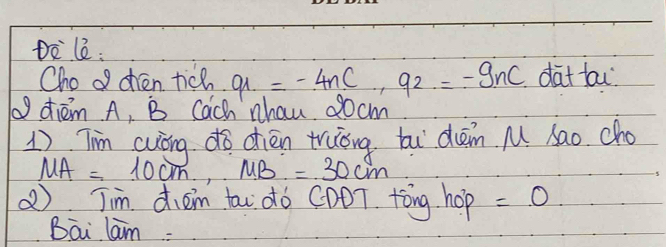 ĐỀ BÀI
Đề lẻ:
Cho 2 điện tích q1 = -4nC, q2 = -9nC đặt tại
2 điểm A, B cách nhau 20cm
1) Tìm cường độ điện trường tại điểm M sao cho
MA = 10cm, MB = 30cm
2) Tìm điểm tại đó CĐĐT tổng hợp = 0
Bài làm =